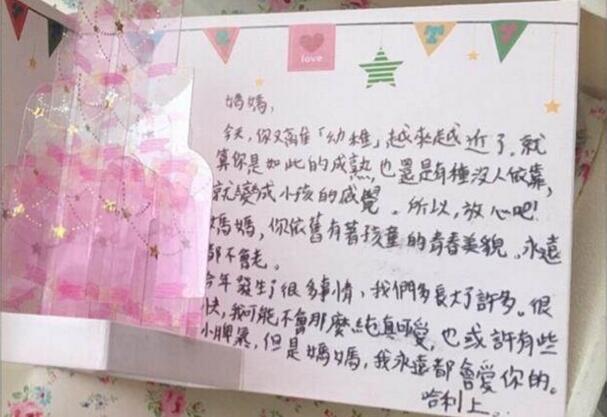 love
媽媽，
今天，你又離「幼稚」越來越近了。就
算你是如此的成熟，也還是有種沒人依靠，
就變成小孩的感覺。所以，放心吧！
媽媽，你依舊有著孩童的青春美貌。永遠
都不會老。
今年發生了很多事情，我們多長大了許多。很
快，我可能不會那麼純真可愛，也或許有些
小脾氣，但是媽媽，我永遠都會愛你的。
哈利上